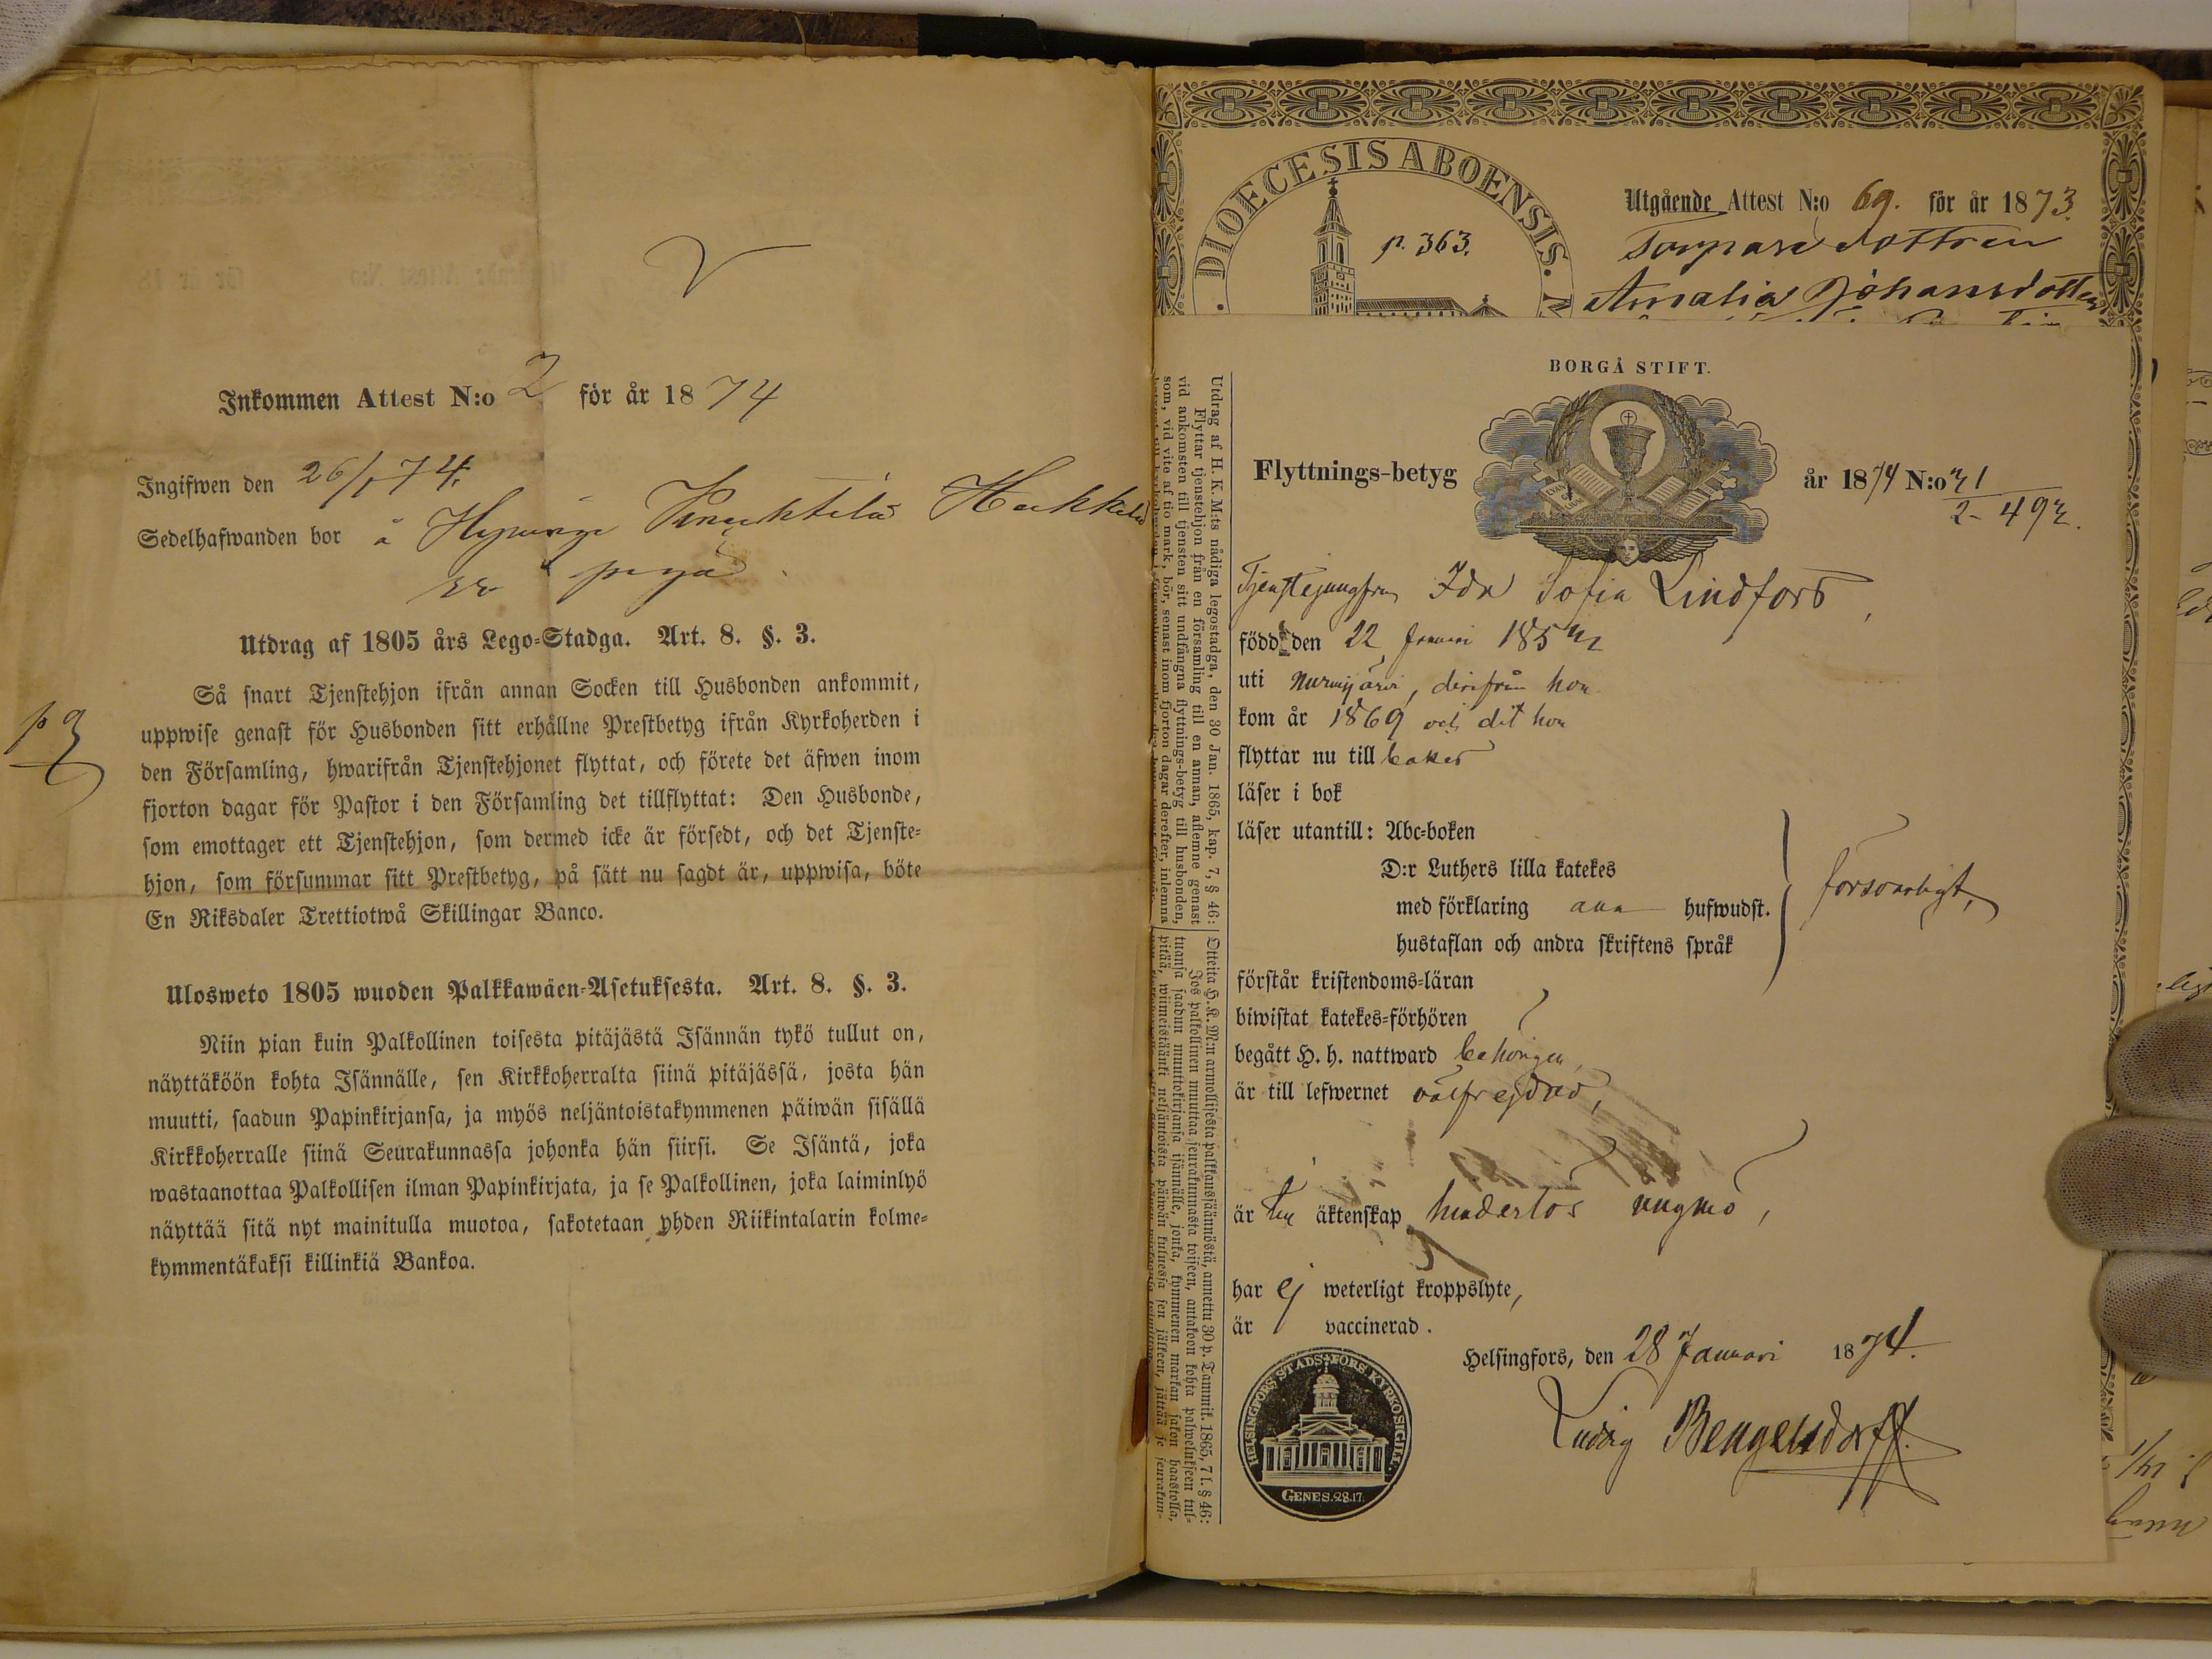 Inkommen Attest N:o 2 för år 1874
Ingifwen den 26/1 74.
Sedelhafwanden bor å
Utdrag af 1805 års Lego-Stadga. Art. 8. §. 3.
Så snart Tjenstehjon ifrån annan Socken till Husbonden ankommit,
uppwise genast för Husbonden sitt erhållne Prestbetyg ifrån Kyrkoherden i
den Församling, hwarifrån Tjenstehjonet flyttat, och förete det äfwen inom
fjorton dagar för Pastor i den Församling det tillflyttat: Den Husbonde,
som emottager ett Tjenstehjon, som dermed icke är försedt, och det Tjenste-
hjon, som försummar sitt Prestbetyg, på sätt nu sagdt är, uppwisa, böte
En Riksdaler Trettiotwå Skillingar Banco.
Ulosweto 1805 wuoden Palkkawäen-Asetuksesta. Art. 8. §. 3.
Niin pian kuin Palkollinen toisesta pitäjästä Isännän tykö tullut on,
näyttäköön kohta Isännälle, sen Kirkkoherralta siinä pitäjässä, josta hän
muutti, saadun Papinkirjansa, ja myös neljäntoistakymmenen päiwän sisällä
Kirkkoherralle siinä Seurakunnassa johonka hän siirsi. Se Isäntä, joka
wastaanottaa Palkollisen ilman Papinkirjata, ja se Palkollinen, joka laiminlyö
näyttää sitä nyt mainitulla muotoa, sakotetaan yhden Riikintalarin kolme-
kymmentäkaksi killinkiä Bankoa.
DIOECESIS ABOENSIS.
p. 363.
Utgående Attest N:o 69. för år 1873.
Torparedottren
Amalia Johansdotter
Utdrag af H. K. M:ts nådiga legostadga, den 30 Jan. 1865, kap. 7, § 46:
Flyttar tjenstehjon från en församling till en annan, aflemne genast
vid ankomsten till tjensten sitt undfångna flyttnings-betyg till husbonden,
som, vid vite af tio mark, bör, senast inom fjorton dagar derefter, inlemna
Otteita H. K. M:n armollisesta palkkaussäännöstä, annettu 30 p. Tammik. 1865, 7 l. § 46:
Jos palkollinen muuttaa seurakunnasta toiseen, antakoon kohta palwelukseen tul-
tuansa saadun muuttokirjansa isännälle, jonka, kymmenen markan sakon haastolla,
pitää, wiimeistäänki neljäntoista päiwän kuluessa sen jälkeen, jättää se seurakun-
BORGÅ STIFT.
Flyttnings-betyg år 1874 N:o 31
2- 493.
Tjenstejungfru Ida Sofia Lindfors,
född den 22 Januari 185
uti Nurmijärvi, derifrån hon
kom år 1869 och dit hon
flyttar nu till baka
läser i bok
läser utantill: Abc-boken
D:r Luthers lilla katekes
med förklaring hufwudst.
hustaflan och andra skriftens språk
försvarligt,
förstår kristendoms-läran
biwistat katekes-förhören
begått H. h. nattward behörigen,
är till lefwernet välfrejdad,
är till äktenskap hinderlös ungmö,
har ej weterligt kroppslyte,
är vaccinerad.
Helsingfors, den 28 Januari 1874.
Ludvig Bengelsdorff.
HELSINGFORS STADS FÖRS. KYRKOSIGILL.
GENES. 28.17.